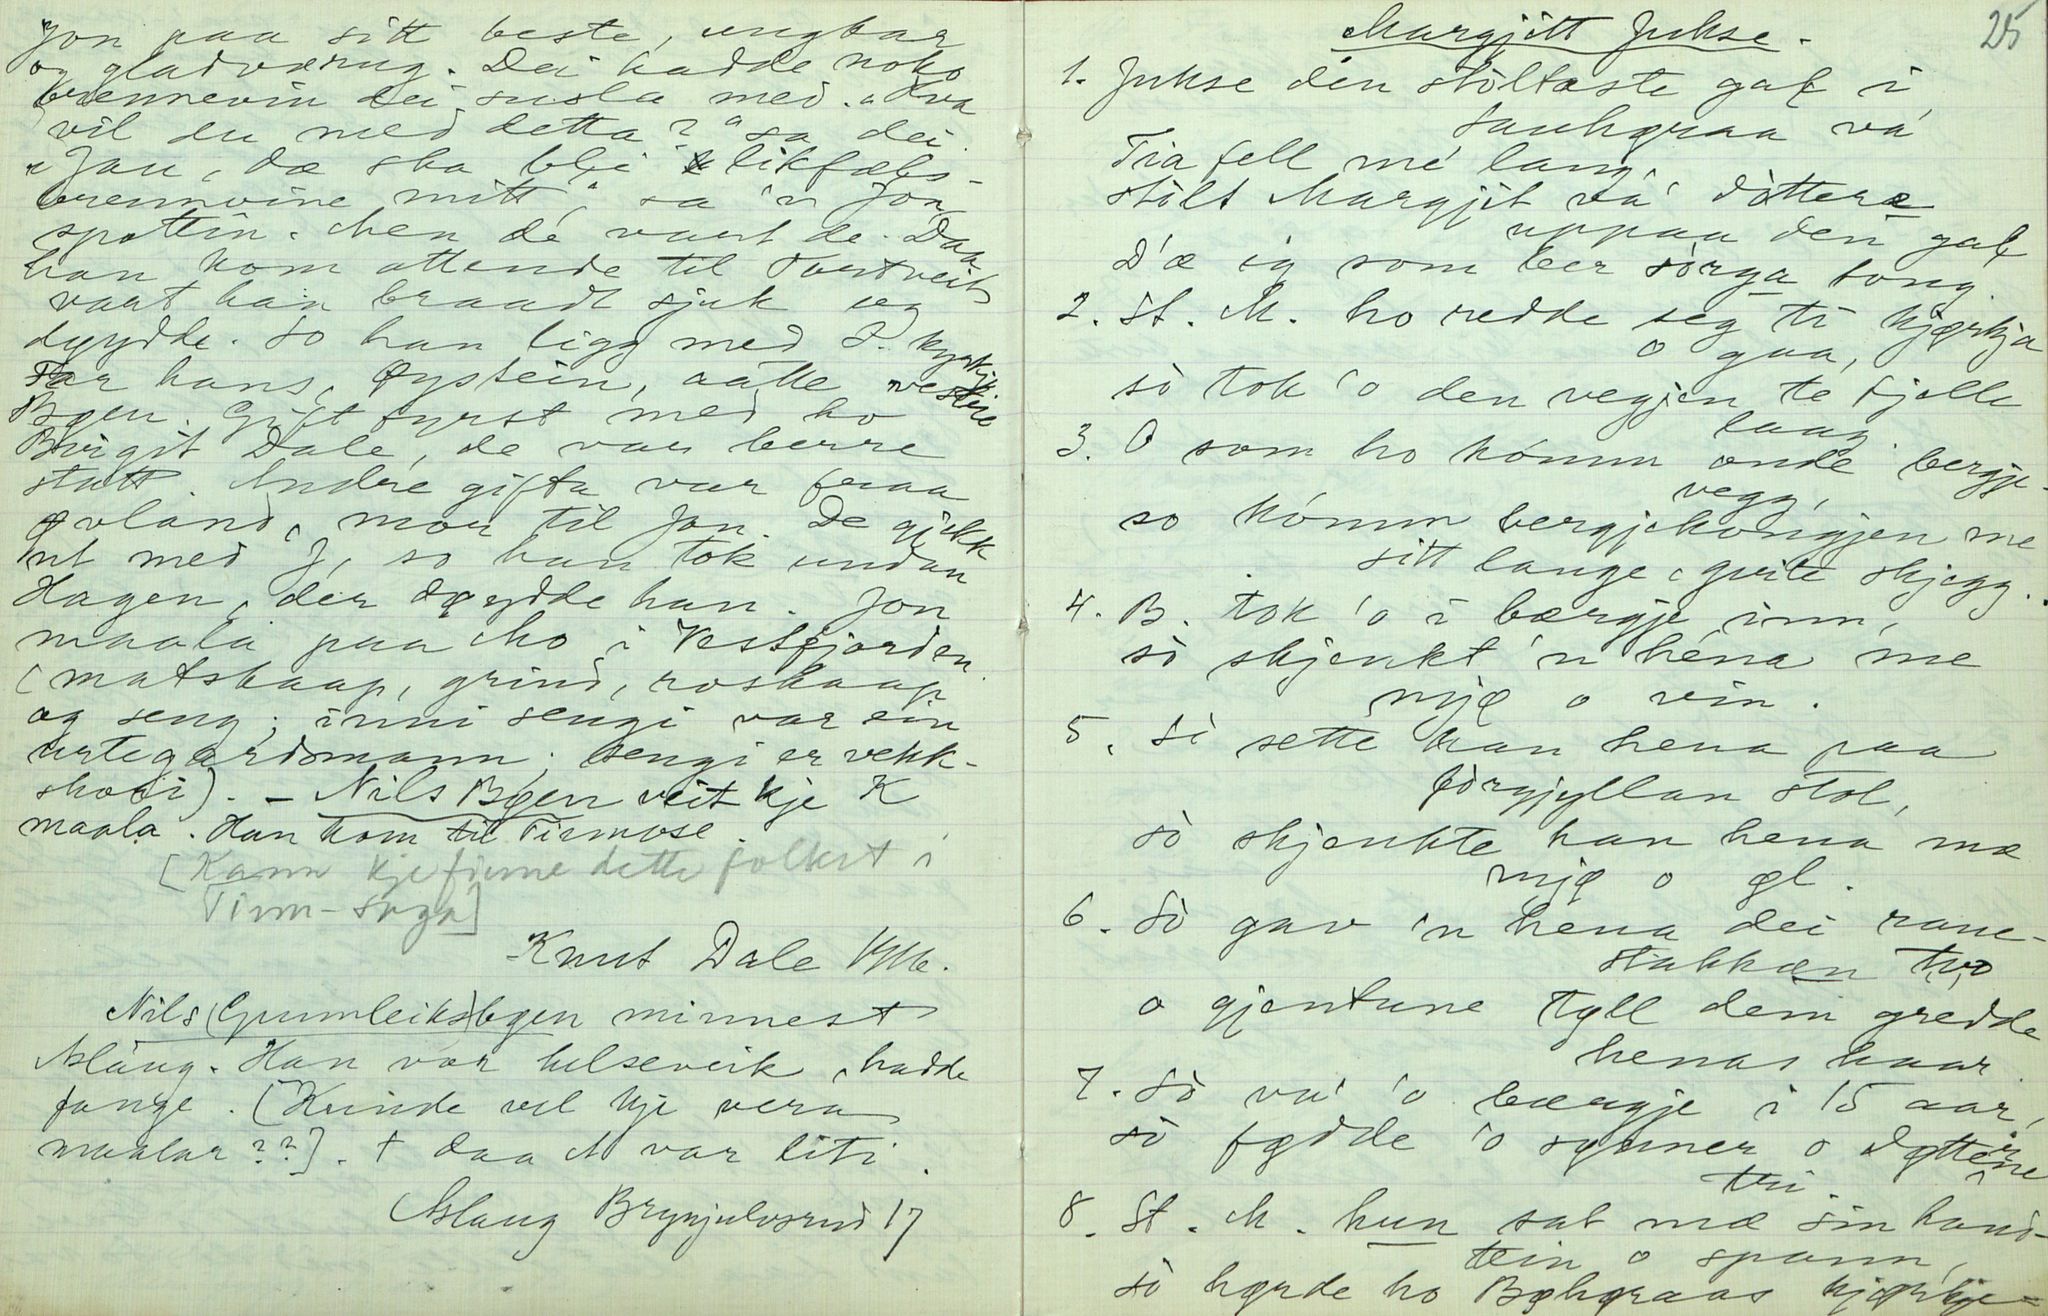 Jon paa sitt beste, ungkar
og gladværug. Dei hadde noko
brennevin dei susla med. „Kva
vil du med detta?“ sa dei.
„Jau, dæ ska bli likfæls-
brennvine mitt,“ sa'n Jon
spottin. Men dé vart de. Daa
han kom attende til Tveitveit
vart han braadt sjuk og
døydde. So han ligg med S. kyrkje
Far hans, Øystein, aatte vestre
Bøen. Gift fyrst med ho
Birgit Dale, de var berre
stutt. Andre gifta var fraa
Øvland, mor til Jon. De gjekk
ut med J, so han tok undan
Hagen, der døydde han. Jon
maala paa Mo i Vestfjorden
(matskaap, grind, roskaap
og seng; inni sengi var ein
urtegardsmann; sengi er vekk-
skori). – Nils Bøen veit kje K
maala. Han kom til Tinnose.
[Kann kje finne dette folket i
Tinn-soga]
Knut Dale 1916.
Nils (Gunnleiks)bøen minnest
Aslaug. Han var helseveik, hadde
fange. [Kunde vel kje vera
maalar??]. † daa A var liti.
Aslaug Brynjulvsrud 17
25
Margjitt Jukse.
1. Jukse den stoltaste gal i
Sauhgraa vá
Tia fell mé lang,
stolt Margjit vá dottere
uppaa den gal
D'æ ig som ber sorga tong.
2. St. M. ho redde seg ti kjørkja
o gaa,
sò tok 'o den vegjen te fjelle
laag.
3. O som ho kómm onde bergje-
vegg,
so kómm bergjekongjen me
sitt lange, gvite skjegg.
4. B. tok 'o i bærgje inn,
sò skjenkt 'n héna me
mjø o vin.
5. Sò sette han hena paa
førgjyllan stol,
sò skjenkte han hena mæ
mjø o øl.
6. Sò gav 'n hena dei raue-
stakkæn tvo
o gjentune tyll deim gredde
henas haar.
7. Sò va' 'o bærgje i 15 aar,
sò fødde 'o sønner o døttrine
tri.
8. St. M. hun sat mæ sin hand-
tein o spann,
sò hørde ho Bøhøraas kjørkje-